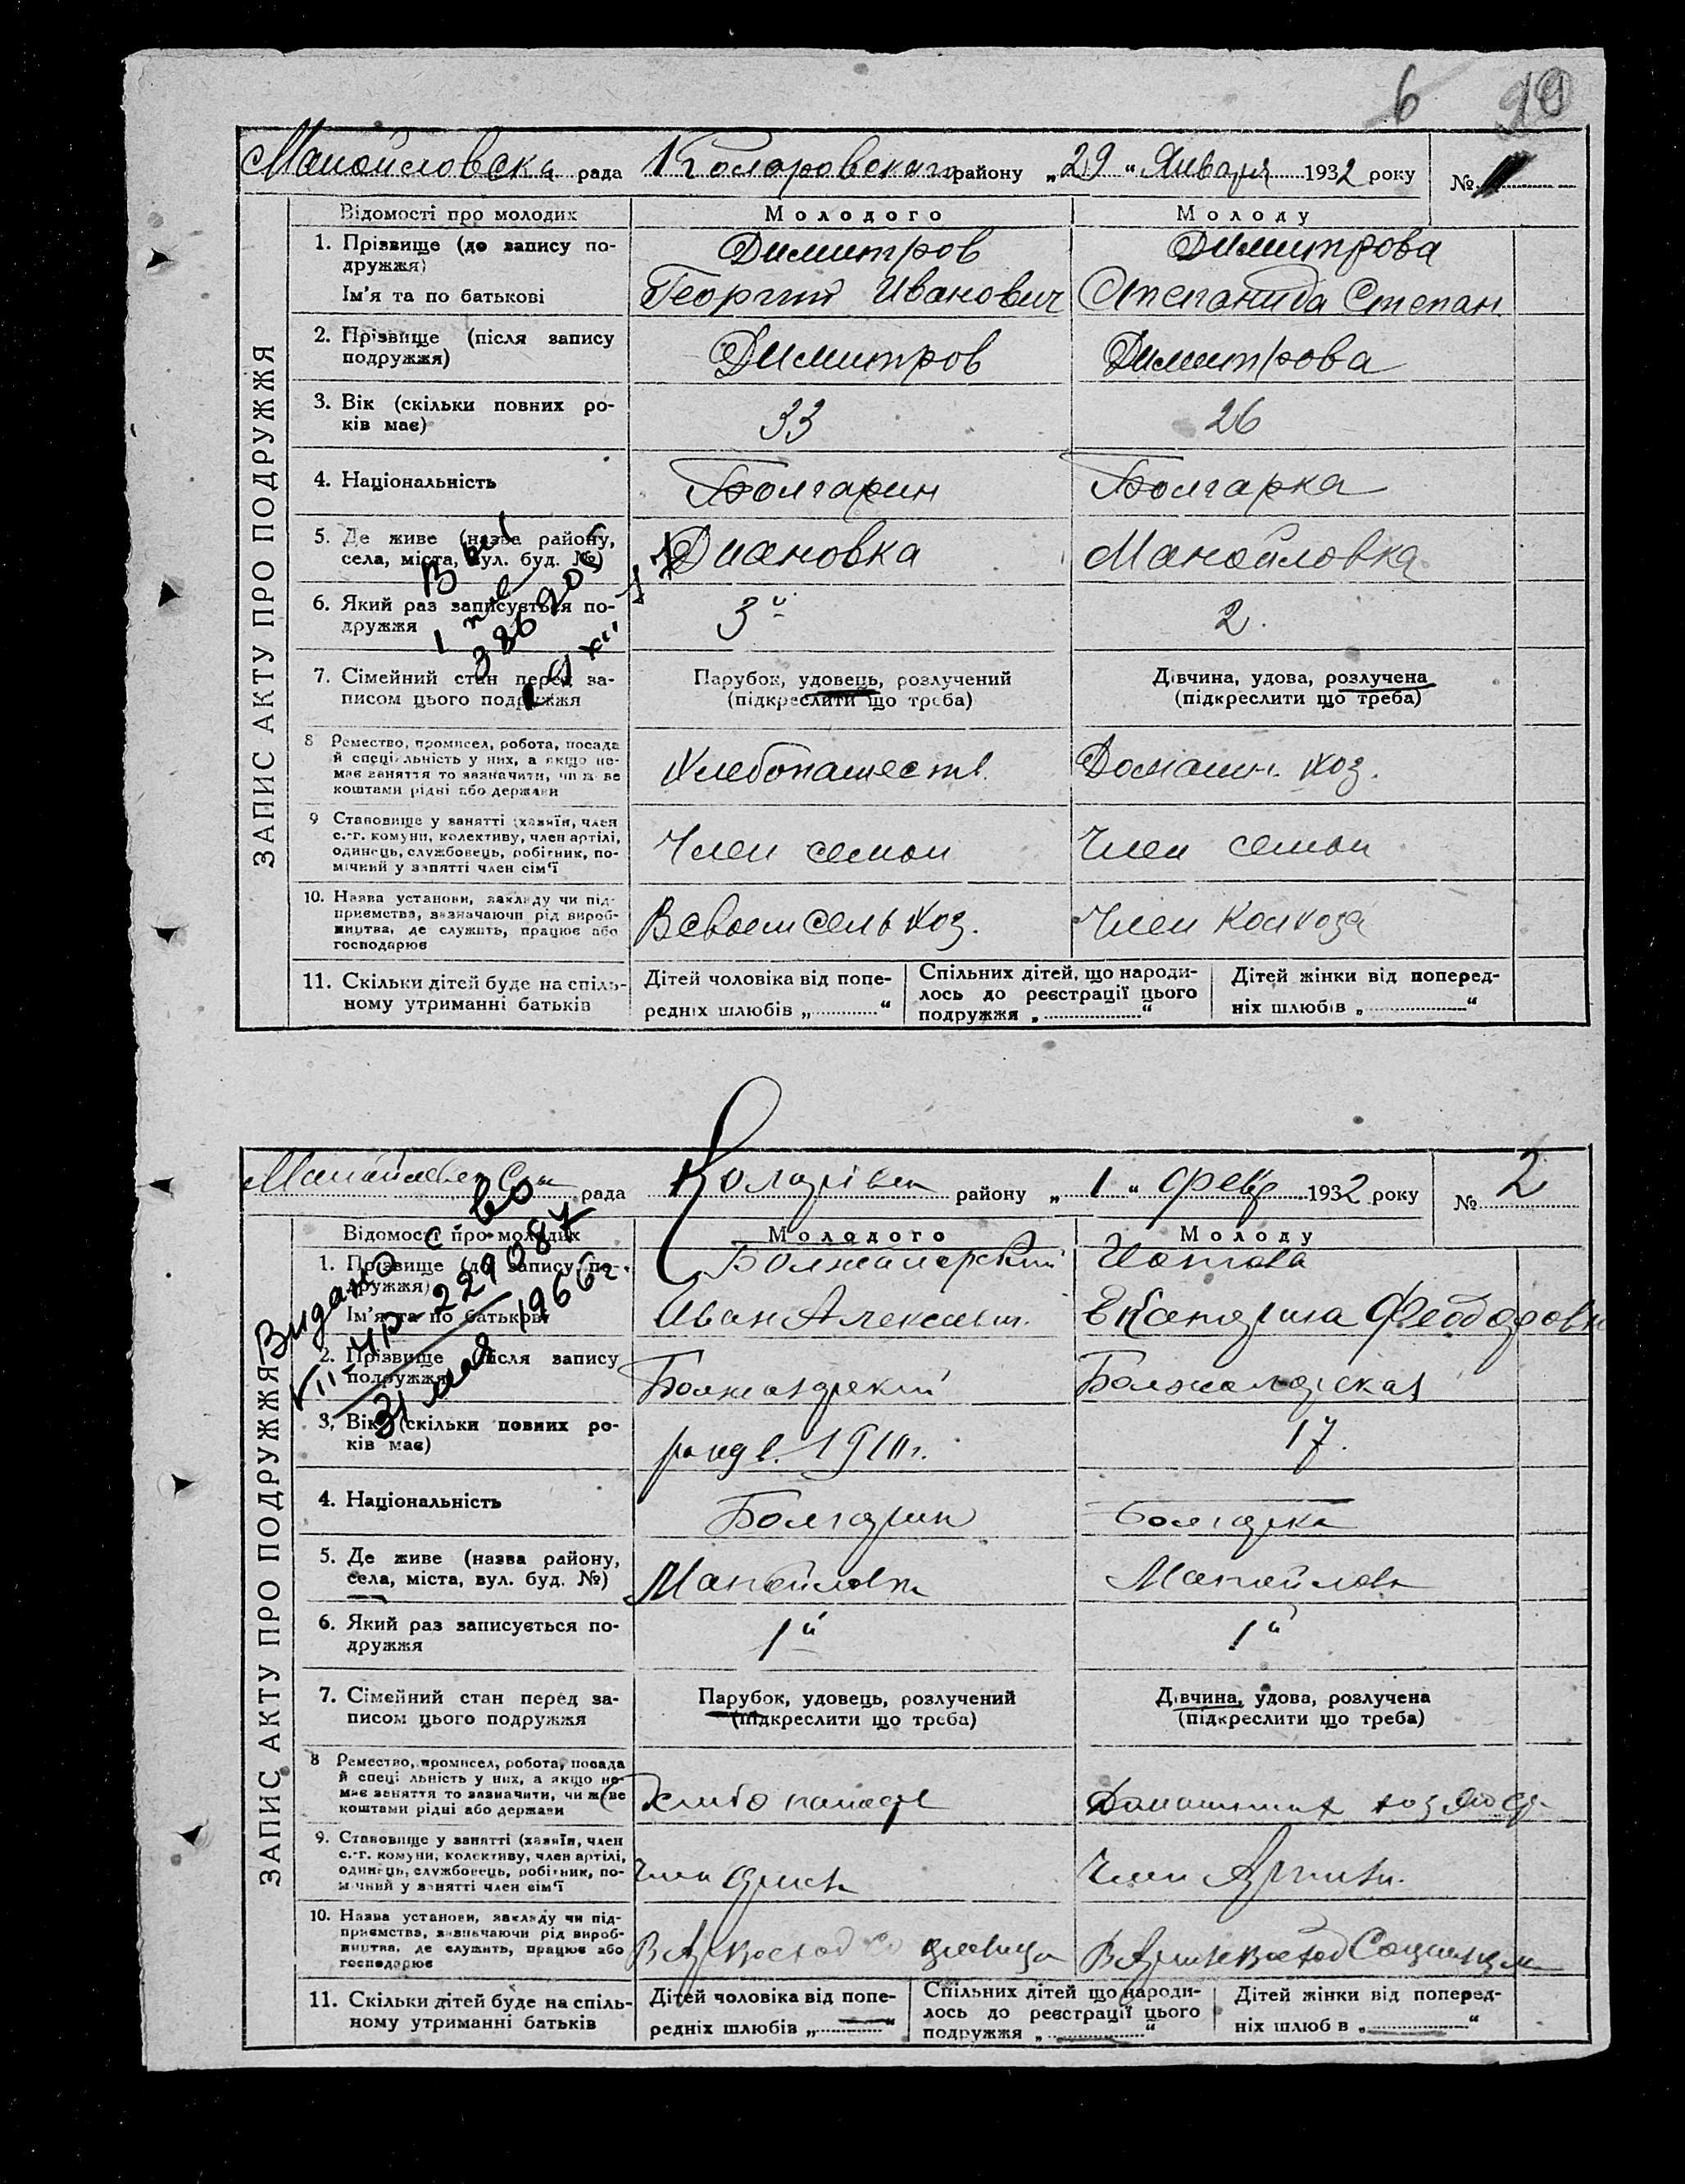 6
Манойловска рада Коларовскаго району „29“ Января 1932 року №
ЗАПИС АКТУ ПРО ПОДРУЖЖЯ
Відомості про молодих Молодого Молоду
1. Прізвище (до запису по-
дружжя) Димитров Димитрова
Ім'я та по батькові Георгий Иванович Степанида Степан.
2. Прізвище (після запису
подружжя) Димитров Димитрова
3. Вік (скільки повних ро-
ків має) 33 26
4. Національність Болгарин Болгарка
5. Де живе (назва району,
села, міста, вул. буд. №) Диановка Манойловка
6. Який раз записується по-
дружжя 3й 2.
7. Сімейний стан перед за-
писом цього подружжя
Парубок, удовець, розлучений
(підкреслити що треба)
Дівчина, удова, розлучена
(підкреслити що треба)
8 Ремество, промисел, робота, посада
й спеціальність у них, а якщо не-
має заняття то зазначити, чи живе
коштами рідні або держави
Хлебопашеств. Домашн. хоз.
9 Становище у занятті (хазяїн, член
с.-г. комуни, колективу, член артілі,
одинець, службовець, робітник, по-
мічний у занятті член сім'ї
Член семьи Член семьи
10. Назва установи, закладу чи під-
приємства, зазначаючи рід вироб-
ництва, де служить, працює або
господарює
В своем сель хоз. Член колхоза
11. Скільки дітей буде на спіль-
ному утриманні батьків
Дітей чоловіка від попе-
редніх шлюбів „ “
Спільних дітей, що народи-
лось до реєстрації цього
подружжя „ “
Дітей жінки від поперед-
ніх шлюбів „ “
рада району „1“ февр 1932 року № 2
ЗАПИС АКТУ ПРО ПОДРУЖЖЯ
Видано с во
229087
31 мая 1966г.
Відомості про молодих Молодого Молоду
1. Прізвище (до запису по-
дружжя)
Ім'я та по батькові Иван Александ. Екатерина Феодоровн
2. Прізвище (після запису
подружжя)
3. Вік (скільки повних ро-
ків має) рожд в. 1910г. 17.
4. Національність Болгарин Болгарка
5. Де живе (назва району,
села, міста, вул. буд. №) Манойловка Манойловк
6. Який раз записується по-
дружжя 1й 1й
7. Сімейний стан перед за-
писом цього подружжя
Парубок, удовець, розлучений
(підкреслити що треба)
Дівчина, удова, розлучена
(підкреслити що треба)
8 Ремество, промисел, робота, посада
й спеціальність у них, а якщо не-
має заняття то зазначити, чи живе
коштами рідні або держави
9. Становище у занятті (хазяїн, член
с.-г. комуни, колективу, член артілі,
одинець, службовець, робітник, по-
мічний у занятті член сім'ї
Член Член Артели.
10. Назва установи, закладу чи під-
приємства, зазначаючи рід вироб-
ництва, де служить, працює або
господарює
11. Скільки дітей буде на спіль-
ному утриманні батьків
Дітей чоловіка від попе-
редніх шлюбів „ — “
Спільних дітей що народи-
лось до реєстрації цього
подружжя „ — “
Дітей жінки від поперед-
ніх шлюб в „ — “